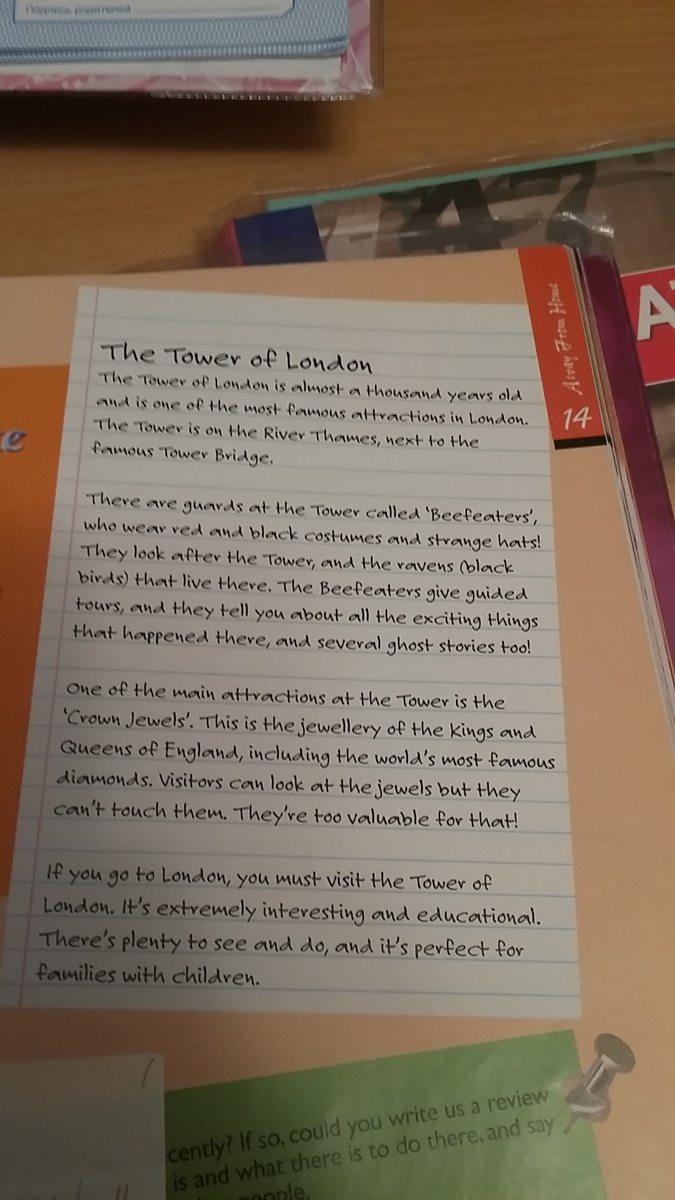 Подпись родителей
The Tower of London
The Tower of London is almost a thousand years old
and is one of the most famous attractions in London.
The Tower is on the River Thames, next to the
famous Tower Bridge.
There are guards at the Tower called 'Beefeaters',
who wear red and black costumes and strange hats!
They look after the Tower, and the ravens (black
birds) that live there. The Beefeaters give guided
tours, and they tell you about all the exciting things
that happened there, and several ghost stories too!
One of the main attractions at the Tower is the
'Crown Jewels'. This is the jewellery of the Kings and
Queens of England, including the world's most famous
diamonds. Visitors can look at the jewels but they
can't touch them. They're too valuable for that!
If you go to London, you must visit the Tower of
London. It's extremely interesting and educational.
There's plenty to see and do, and it's perfect for
families with children.
Away From Home
14
cently? If so, could you write us a review
is and what there is to do there, and say
people.